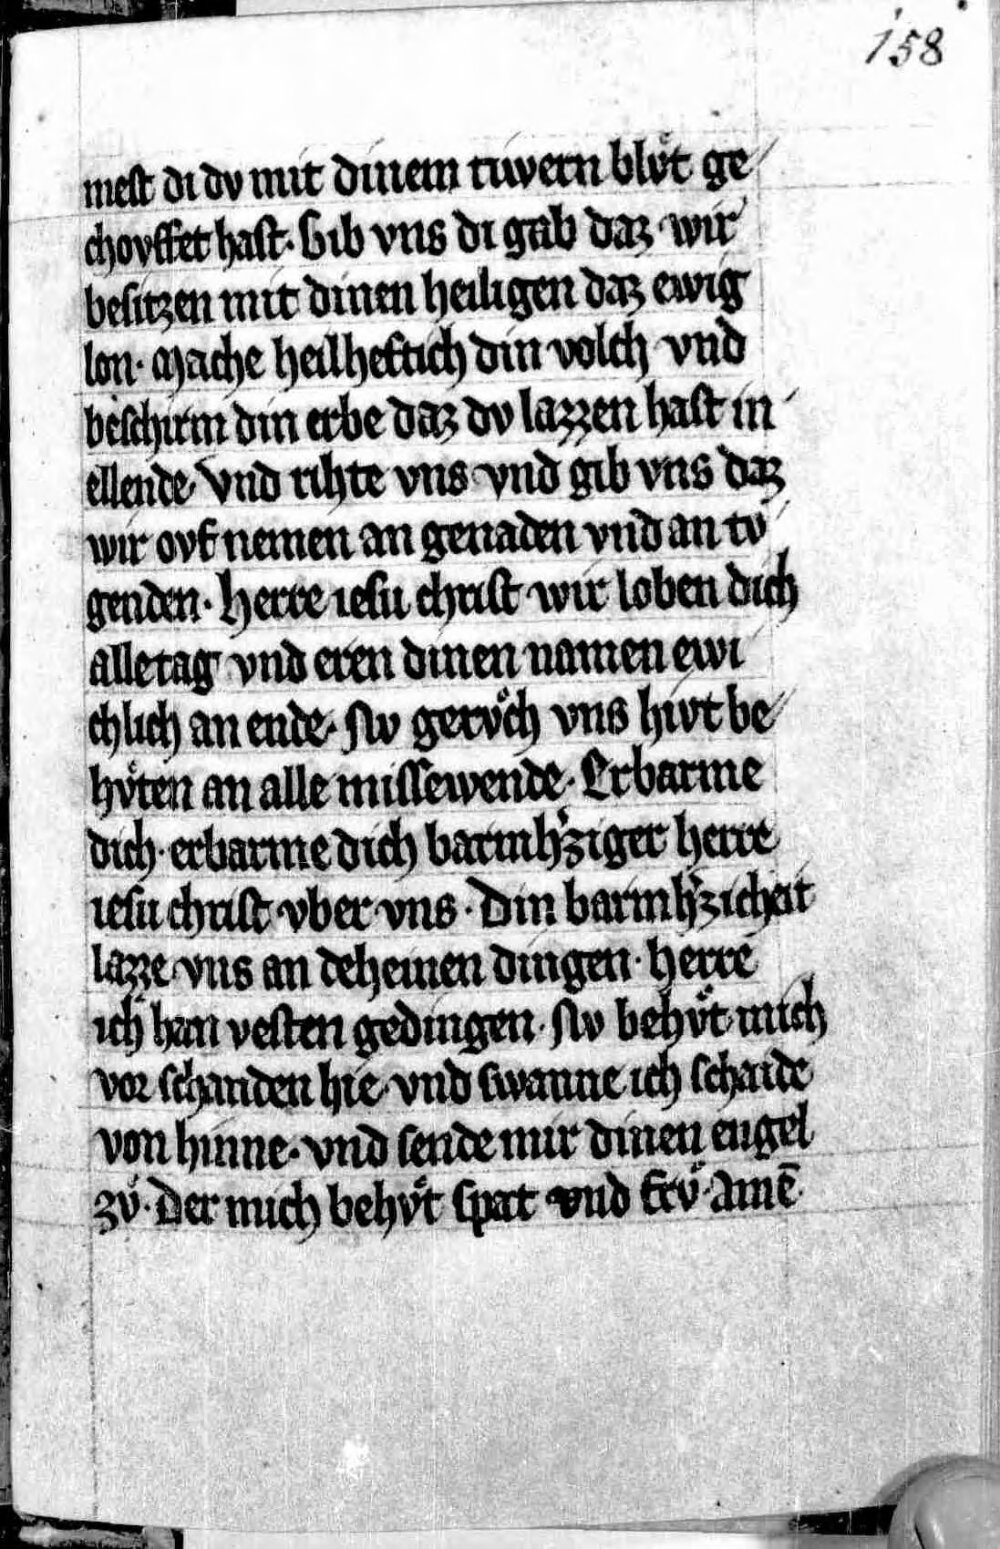 158
mest di dv mit dinem tiwern blvͦt ge
chovffet hast· Gib vns di gab daz wir
besitzen mit dinen heiligen daz ewig
lon· Mache heilheftich din volch vnd
beschirm din erbe daz dv lazzen hast in
ellende vnd rihte vns vnd gib vns daz
wir ovf nemen an genaden vnd an tv
genden· Herre iesu christ wir loben dich
alletag vnd eren dinen namen ewi
chlich an ende· Nv gervͦch vns hivt be
hvͤten an alle missewende· Erbarme
dich· erbarme dich barmh'ziger herre
iesu christ vber vns· Din barmh'zicheit
lazze vns an deheinen dingen· herre
ich han vesten gedingen· Nv behvͤt mich
vor schanden hie vnd swanne ich schaide
von hinne· vnd sende mir dinen engel
zvͦ· Der mich behvͤt spat vnd frvͦ· Amē